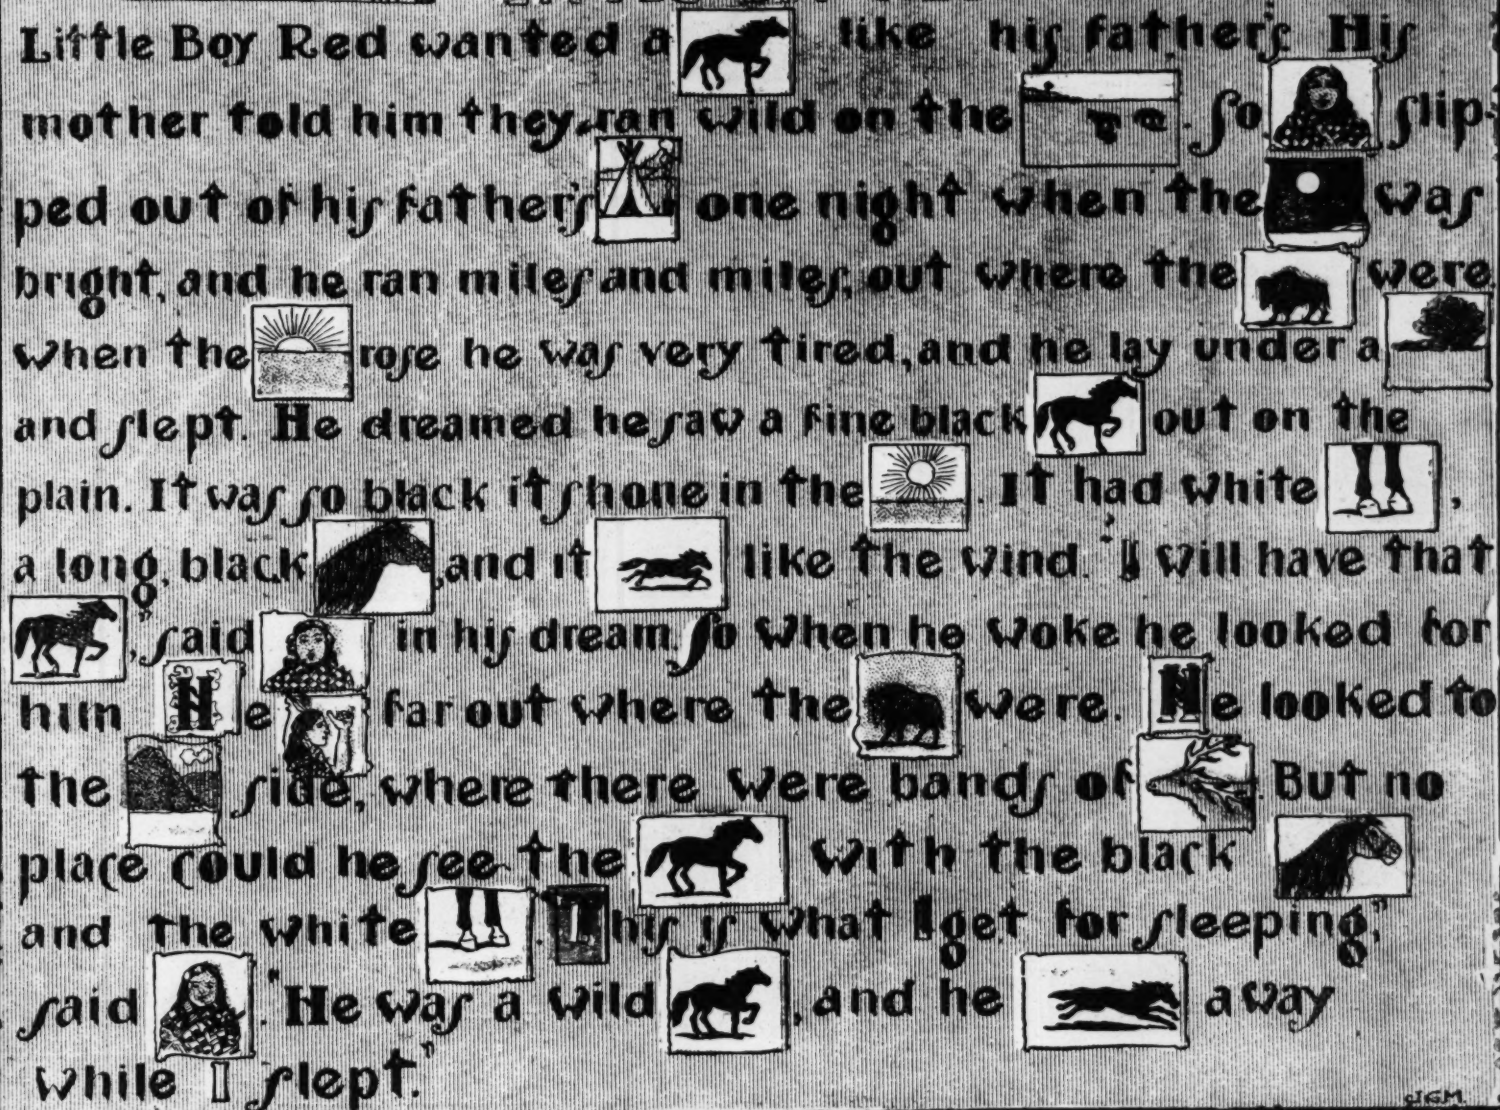 Little Boy Red wanted a like his father's. His
mother told him they ran wild on the . So slip-
ped out of his father's one night when the was
bright, and he ran miles and miles, out where the were.
When the rose he was very tired, and he lay under a
and slept. He dreamed he saw a fine black out on the
plain. It was so black it shone in the . It had white ,
a long, black , and it like the wind. "I will have that
," said in his dream. So when he woke he looked for
him He far out where the were. He looked to
the side, where there were bands of . But no
place could he see the with the black
and the white . "This is what I get for sleeping,"
said . "He was a wild , and he away
while I slept."
J.G.M.